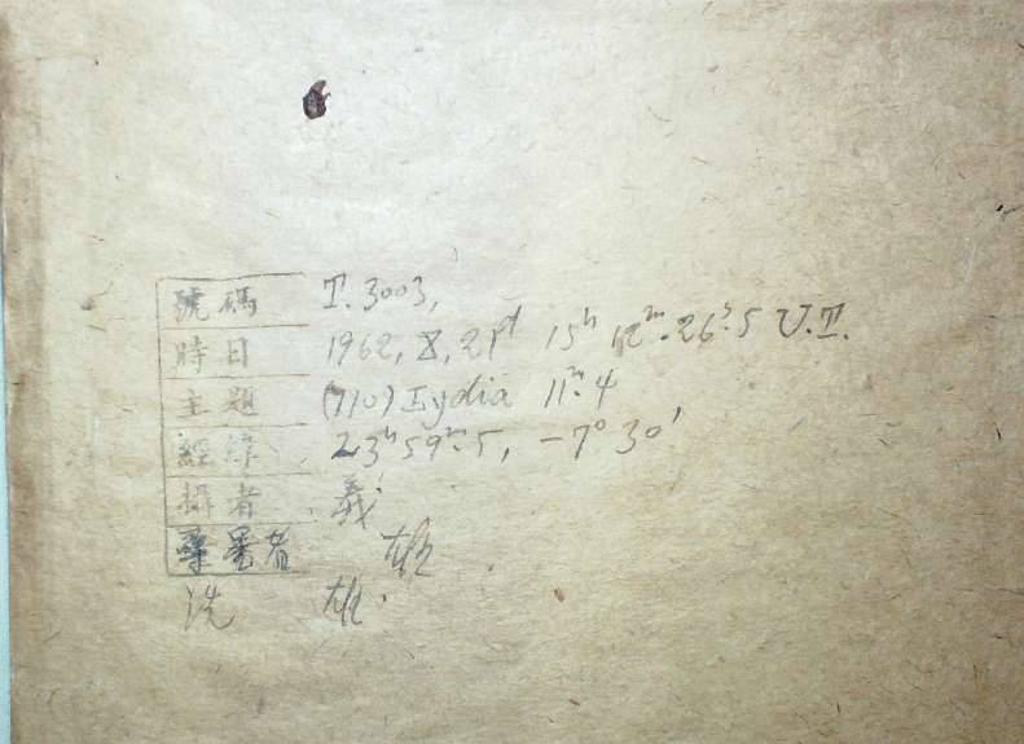 號碼 T. 3003,
時日 1962, 8, 21d 15h 12m.26s.5 U.T.
主題 (110) Lydia 11m.4
經緯 23h 59m.5, -7° 30'
攝者 義
尋星者 雄
洗 雄.